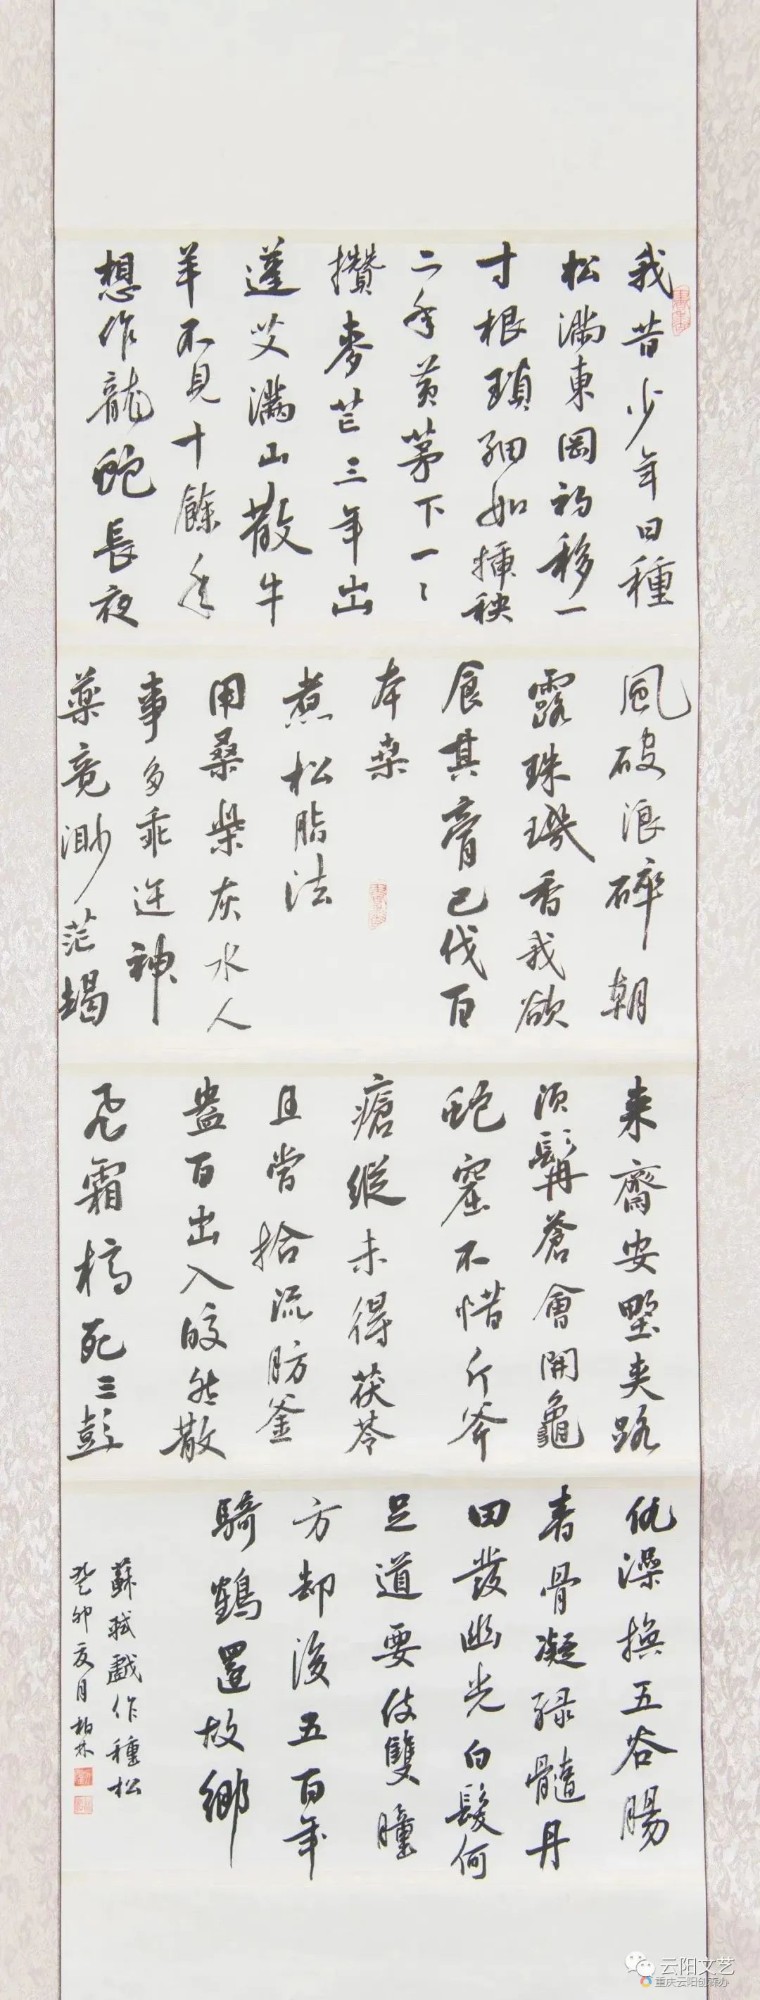 我昔少年日種
松滿東岡初移一
寸根瑣細如插秧
二年黃茅下一々
攢麥芒三年出
蓬艾滿山散牛
羊不見十餘年
想作龍蛇長夜
風破浪碎朝
露珠璣香我欲
食其膏已伐百
本桒
煮松脂法
用桑柴灰水人
事多乖迕神
藥竟渺茫朅
来齊安野夾路
須髯蒼會開龜
蛇窟不惜斤斧
瘡縱未得茯苓
且當拾流肪釜
盎百出入皎然散
飛霜槁死三彭
仇澡換五谷腸
青骨凝緑髓丹
田發幽光白髮何
足道要使雙瞳
方却後五百年
騎鶴還故鄉
蘇軾戲作種松
癸卯夏月柏林
云阳文艺